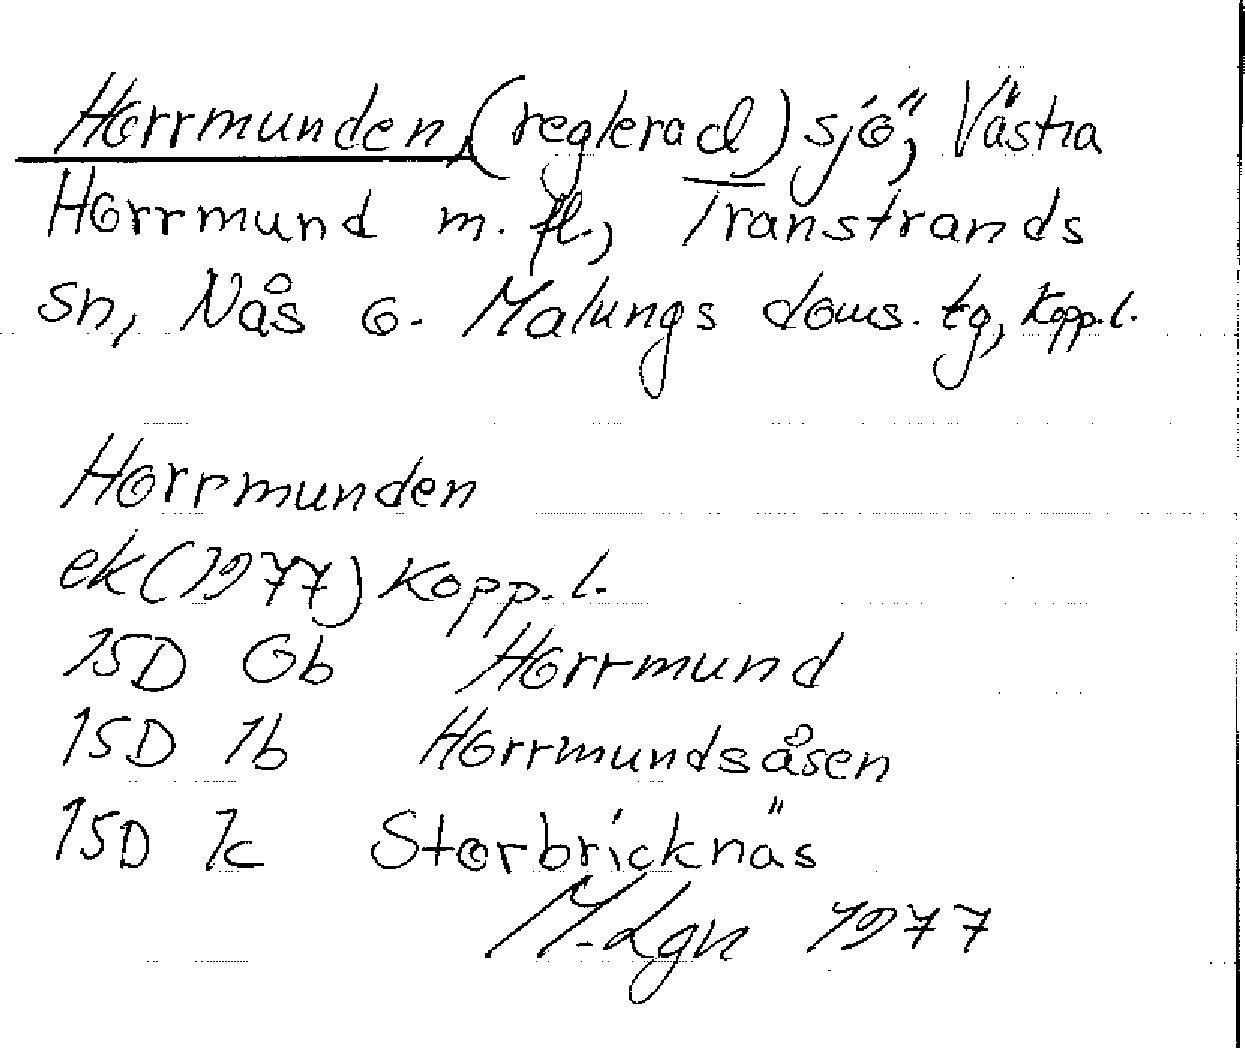 Horrmunden, (reglerad) sjö, Västra
Horrmund m. fl., Transtrands
sn, Nås o. Malungs doms. tg, Kopp. l.
Horrmunden
ek (1977) Kopp. l.
15D 0b Horrmund
15D 1b Horrmundsåsen
15D 1c Storbricknäs
M. Lgn 1977